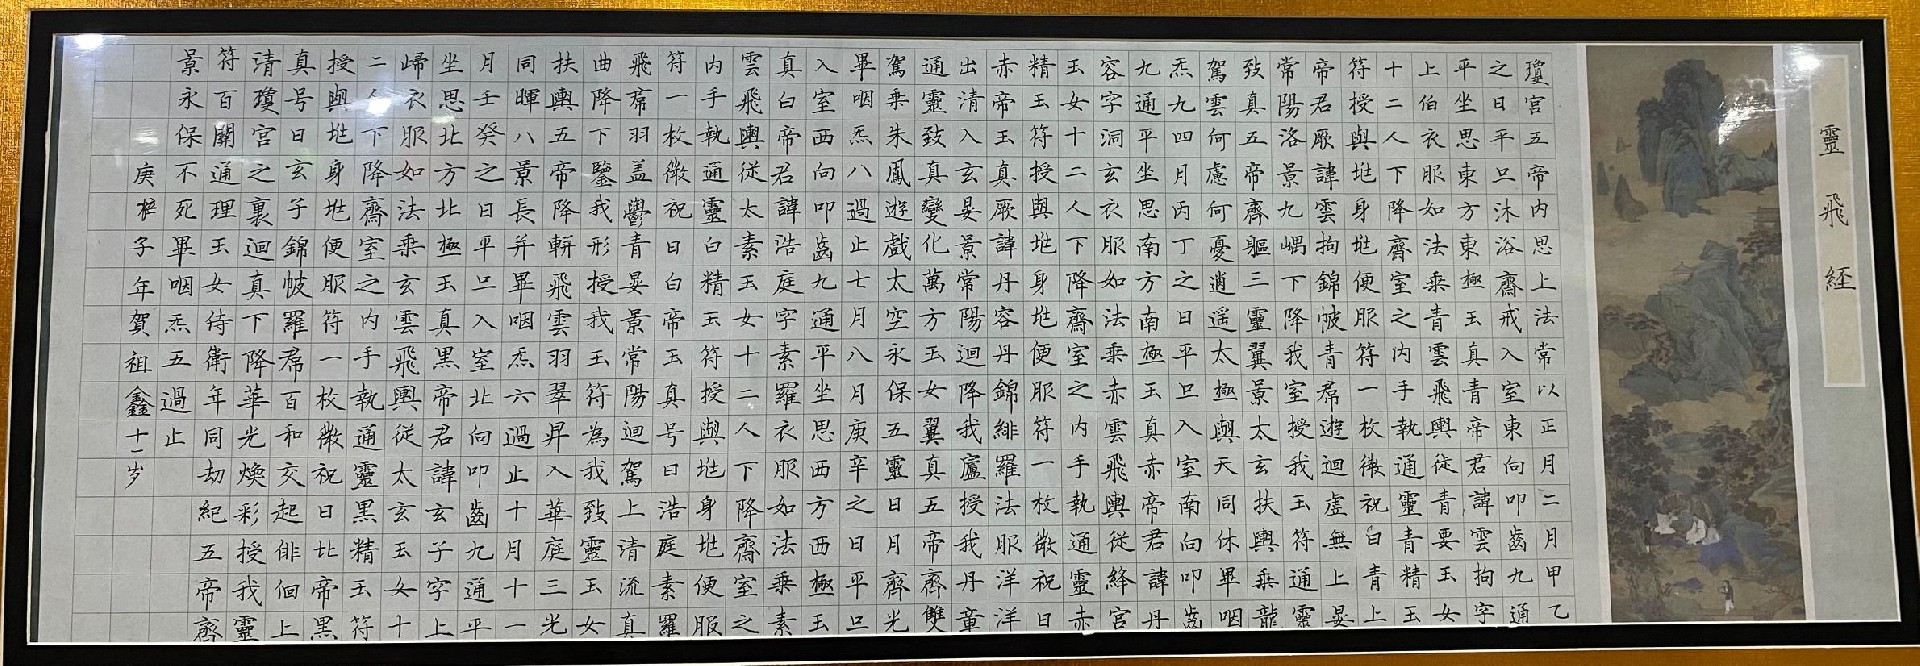 靈飛經
瓊宮五帝內思上法常以正月二月甲乙
之日平旦沐浴齋戒入室東向叩齒九通
平坐思東方東極玉真青帝君諱雲拘字
上伯衣服如法乘青雲飛輿從青要玉女
十二人下降齋室之內手執通靈青精玉
符授與兆身兆便服符一枚微祝曰青上
帝君厥諱雲拘錦帔青帬遊迴虛無上晏
常陽洛景九嵎下降我室授我玉符通靈
致真五帝齊軀三靈翼景太玄扶輿乘龍
駕雲何慮何憂逍遙太極與天同休畢咽
炁九四月丙丁之日平旦入室南向叩齒
九通平坐思南方南極玉真赤帝君諱丹
容字洞玄衣服如法乘赤雲飛輿從絳宮
玉女十二人下降齋室之內手執通靈赤
精玉符授與兆身兆便服符一枚微祝曰
赤帝玉真厥諱丹容丹錦緋羅法服洋洋
出清入玄晏景常陽迴降我廬授我丹章
通靈致真變化萬方玉女翼真五帝齊雙
駕乘朱鳳遊戲太空永保五靈日月齊光
畢咽炁八過止七月八月庚辛之日平旦
入室西向叩齒九通平坐思西方西極玉
真白帝君諱浩庭字素羅衣服如法乘素
雲飛輿從太素玉女十二人下降齋室之
內手執通靈白精玉符授與兆身兆便服
符一枚微祝曰白帝玉真号曰浩庭素羅
飛帬羽盖鬱青晏景常陽迴駕上清流真
曲降下鑒我形授我玉符為我致靈玉女
扶輿五帝降軿飛雲羽翠昇入華庭三光
同暉八景長并畢咽炁六過止十月十一
月壬癸之日平旦入室北向叩齒九通平
坐思北方北極玉真黑帝君諱玄子字上
歸衣服如法乘玄雲飛輿從太玄玉女十
二人下降齋室之內手執通靈黑精玉符
授與兆身兆便服符一枚微祝曰北帝黑
真号曰玄子錦帔羅帬百和交起俳佪上
清瓊宮之裏迴真下降華光煥彩授我靈
符百關通理玉女侍衛年同劫紀五帝齊
景永保不死畢咽炁五過止
庚子年賀祖鑫十一岁